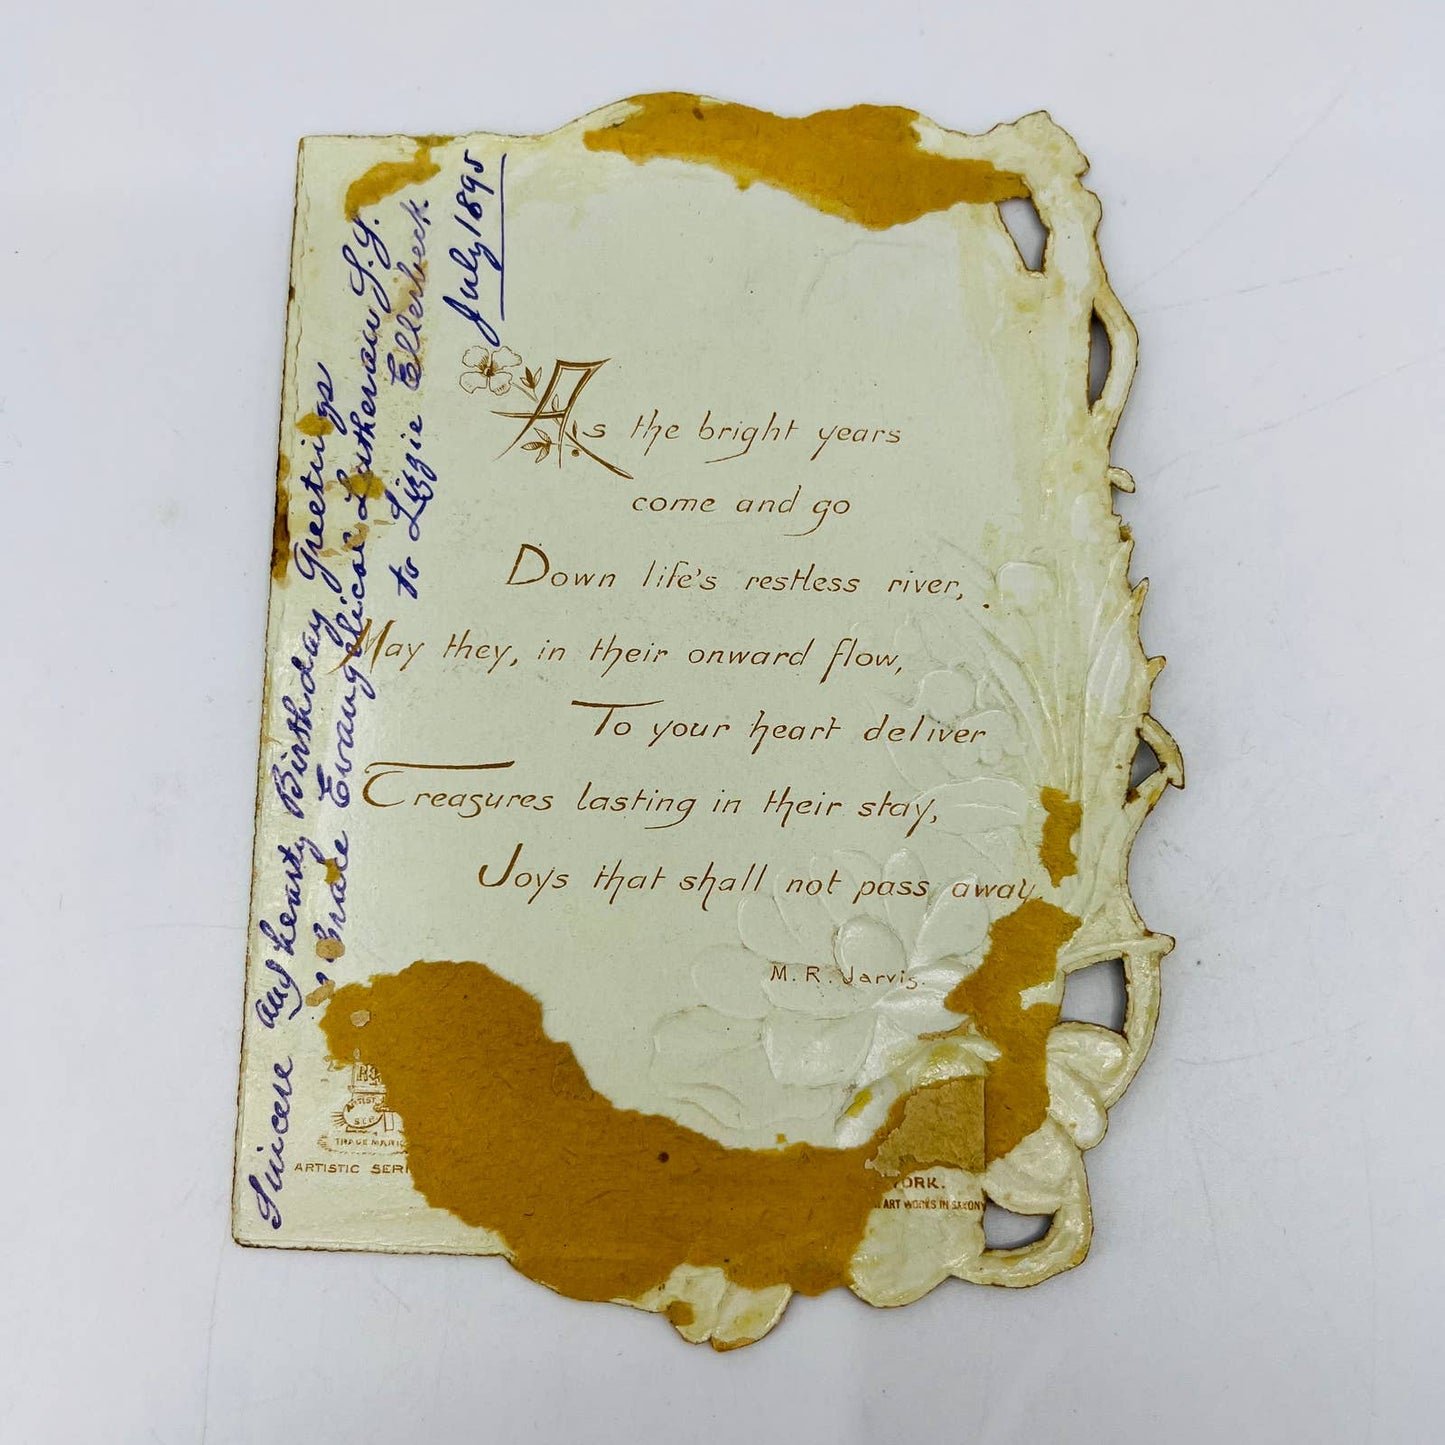 As the bright years
come and go
Down life's restless river,
May they, in their onward flow,
To your heart deliver
Treasures lasting in their stay,
Joys that shall not pass away.
M. R. Jarvis.
Sincere and hearty Birthday Greetings
Grace Evangelical Lutheran S.S.
to Lizzie Ellerbeck
July 1895
ARTIST
TRADE MARK
ARTISTIC SERI
YORK.
ART WORKS IN SAXONY